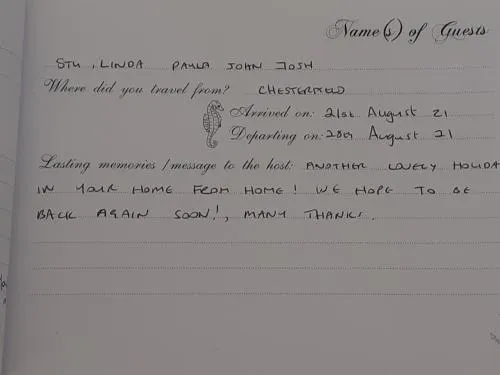 Name(s) of Guests
STU, LINDA PAULA JOHN JOSH
Where did you travel from? CHESTERFIELD
Arrived on: 21st August 21
Departing on: 28th August 21
Lasting memories / message to the host: ANOTHER LOVELY HOLIDA
IN YOUR HOME FROM HOME! WE HOPE TO BE
BACK AGAIN SOON!, MANY THANKS.